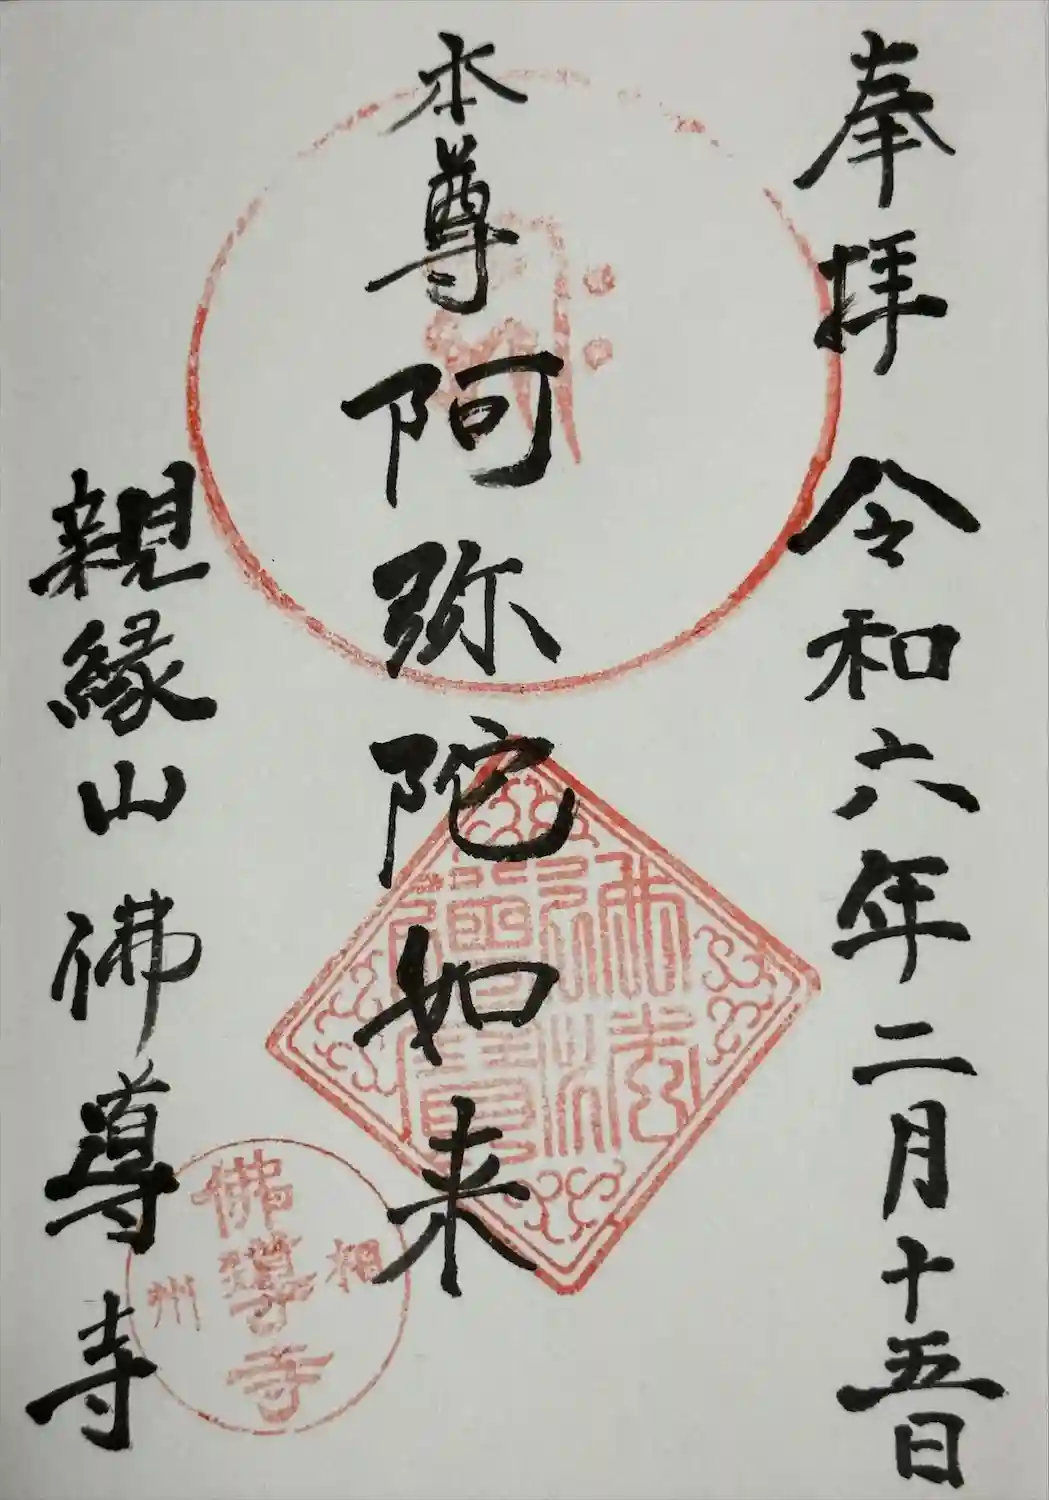 奉拝 令和六年二月十五日
本尊 阿弥陀如来
親縁山 佛導寺
佛法僧寳
相州
佛導寺